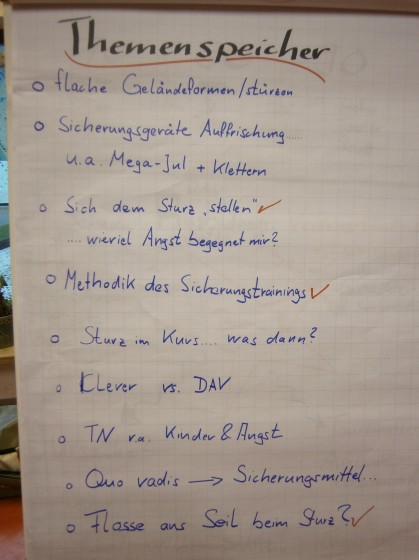 Themenspeicher
o flache Geländeformen/stürzen
o Sicherungsgeräte Auffrischung.....
u.a. Mega-Jul + Klettern
o Sich dem Sturz „stellen" ✓
.... wieviel Angst begegnet mir?
o Methodik des Sicherungstrainings ✓
o Sturz im Kurs.... was dann?
o Klever vs. DAV
o TN v.a. Kinder & Angst
o Quo vadis → Sicherungsmittel...
o Flasse ans Seil beim Sturz? ✓